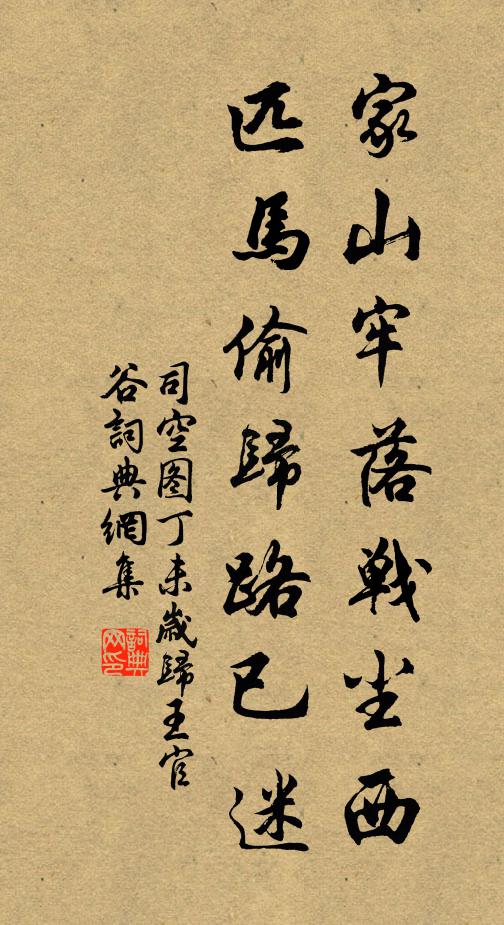 家山牢落戰尘西
匹馬偷歸路已迷
司空图丁未歲歸王官
谷詞典網集
詞典网印